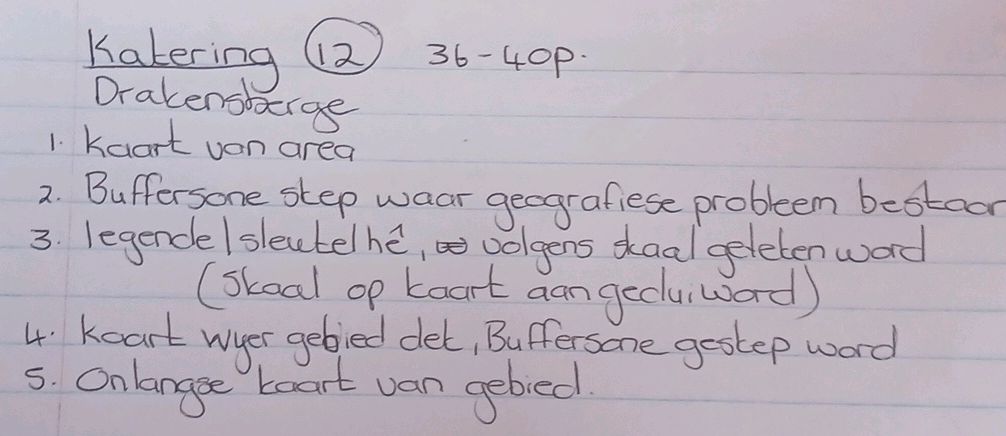 Katering 12 36-40p.
Drakensberge
1. Kaart van area
2. Buffersone skep waar geografiese probleem bestaan
3. legende/sleutel hê, volgens skaal geteken word
(Skaal op kaart aangedui word)
4. Kaart wyer gebied dek, Buffersone geskep word
5. Onlangse kaart van gebied.